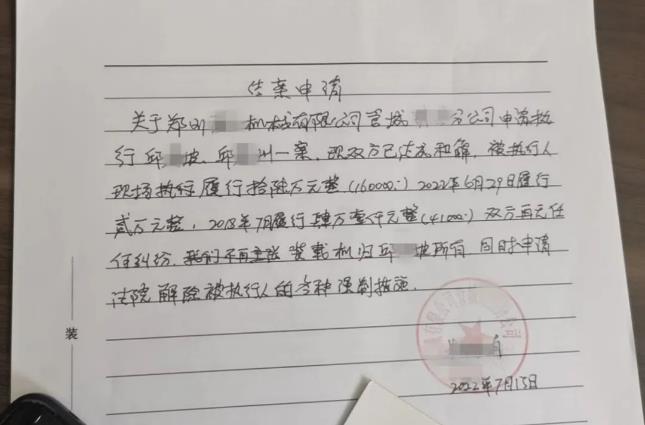 结案申请
关于郑州机械有限公司管城分公司申请执
行邱坡、邱川一案，现双方已达成和解，被执行人
现场执行履行拾陆万元整(160000.)2022年6月29日履行
贰万元整，2018年7月履行肆万壹仟元整(41000.)双方再无任
何纠纷，我们不再主张装载机归邱坡所有，同时申请
法院解除被执行人的各种强制措施。
2022年7月15日
装